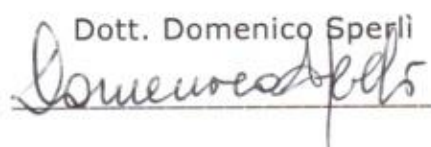 Dott. Domenico Sperlì
Domenico Sperlì